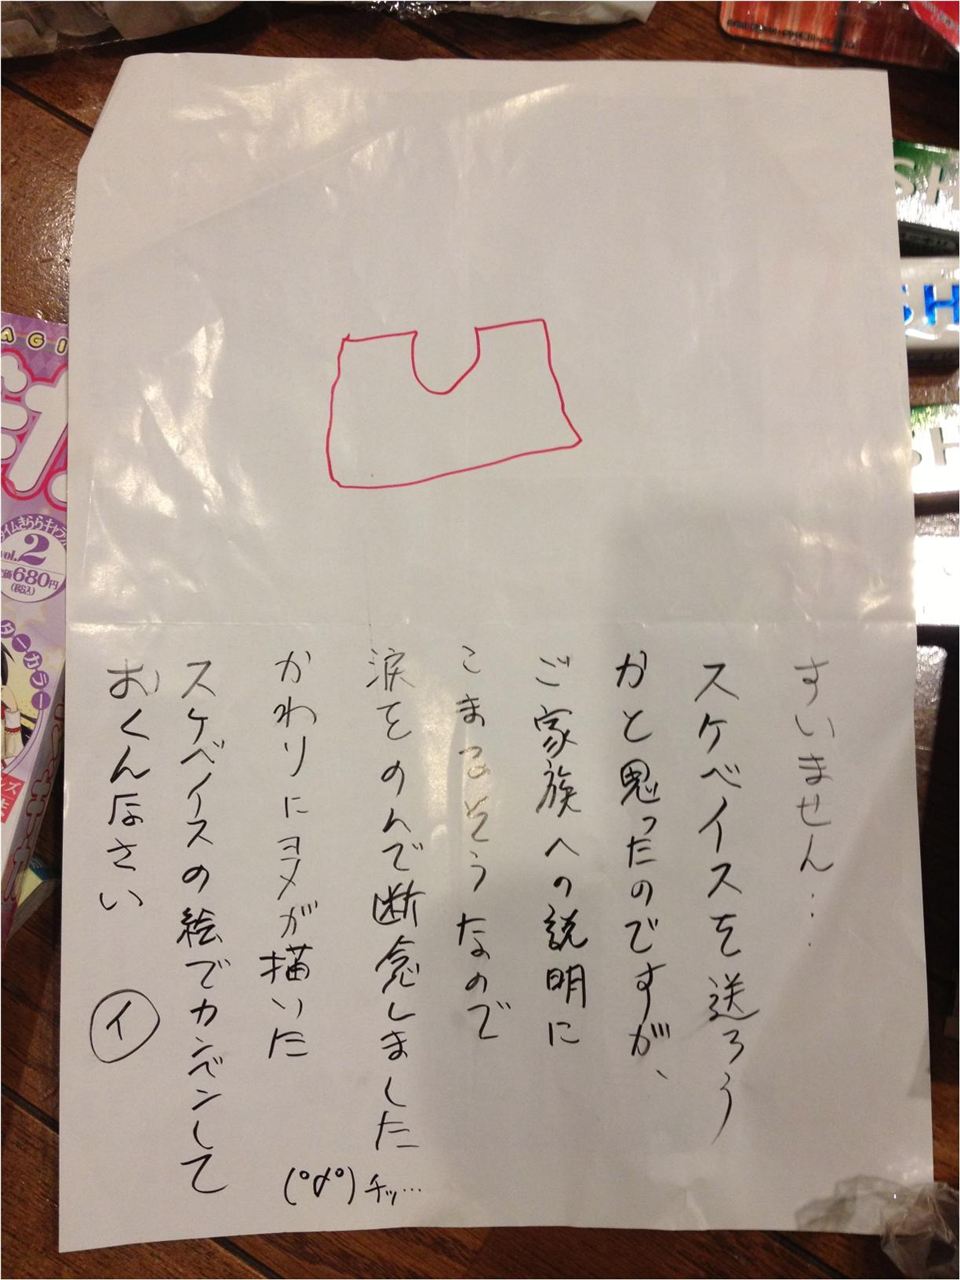 すいません…
スケベイスを送ろう
かと思ったのですが、
ご家族への説明に
こまるそうなので
涙をのんで断念しました
かわりにヨメが描いた
スケベイスの絵でカンベンして
おくんなさい
イ
(°д°)チッ…
AGI
vol.2
680円
(税込)
ターカラー
SH
SH
SH